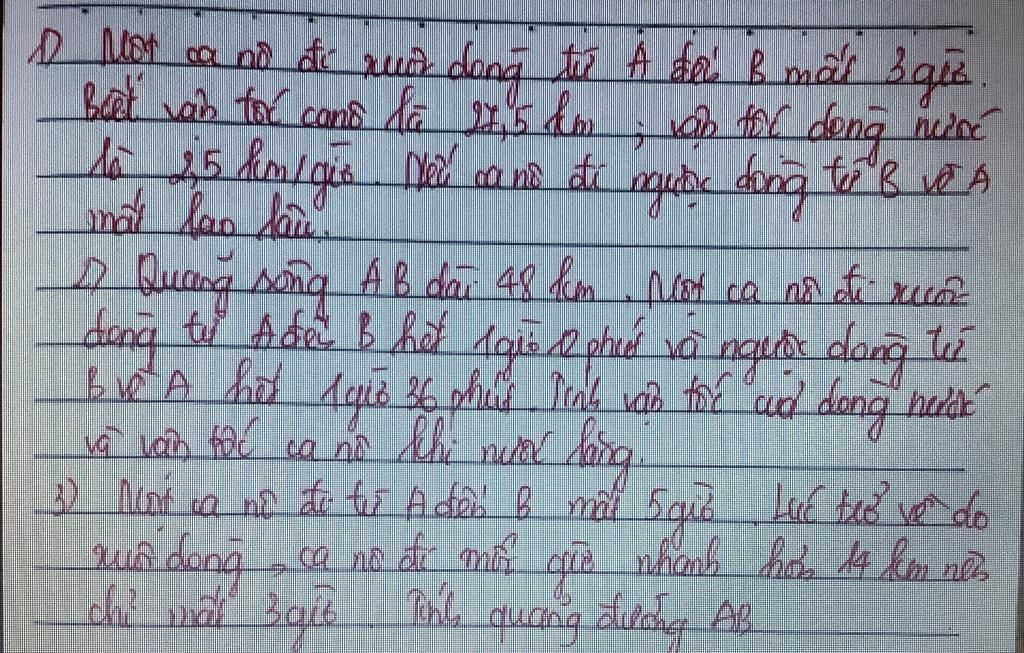 1) Một ca nô đi xuôi dòng từ A đến B mất 3 giờ.
Biết vận tốc canô là 27,5 km ; vận tốc dòng nước
là 2,5 km/giờ. Nếu ca nô đi ngược dòng từ B về A
mất bao lâu.
2) Quãng sông AB dài 48 km. Một ca nô đi xuôi
dòng từ A đến B hết 1 giờ phút và ngược dòng từ
B về A hết 1 giờ 36 phút. Tính vận tốc của dòng nước
và vận tốc ca nô khi nước lặng.
3) Một ca nô đi từ A đến B mất 5 giờ. Lúc trở về do
xuôi dòng, ca nô đi mỗi giờ nhanh hơn 14 km nên
chỉ mất 3 giờ. Tính quãng đường AB